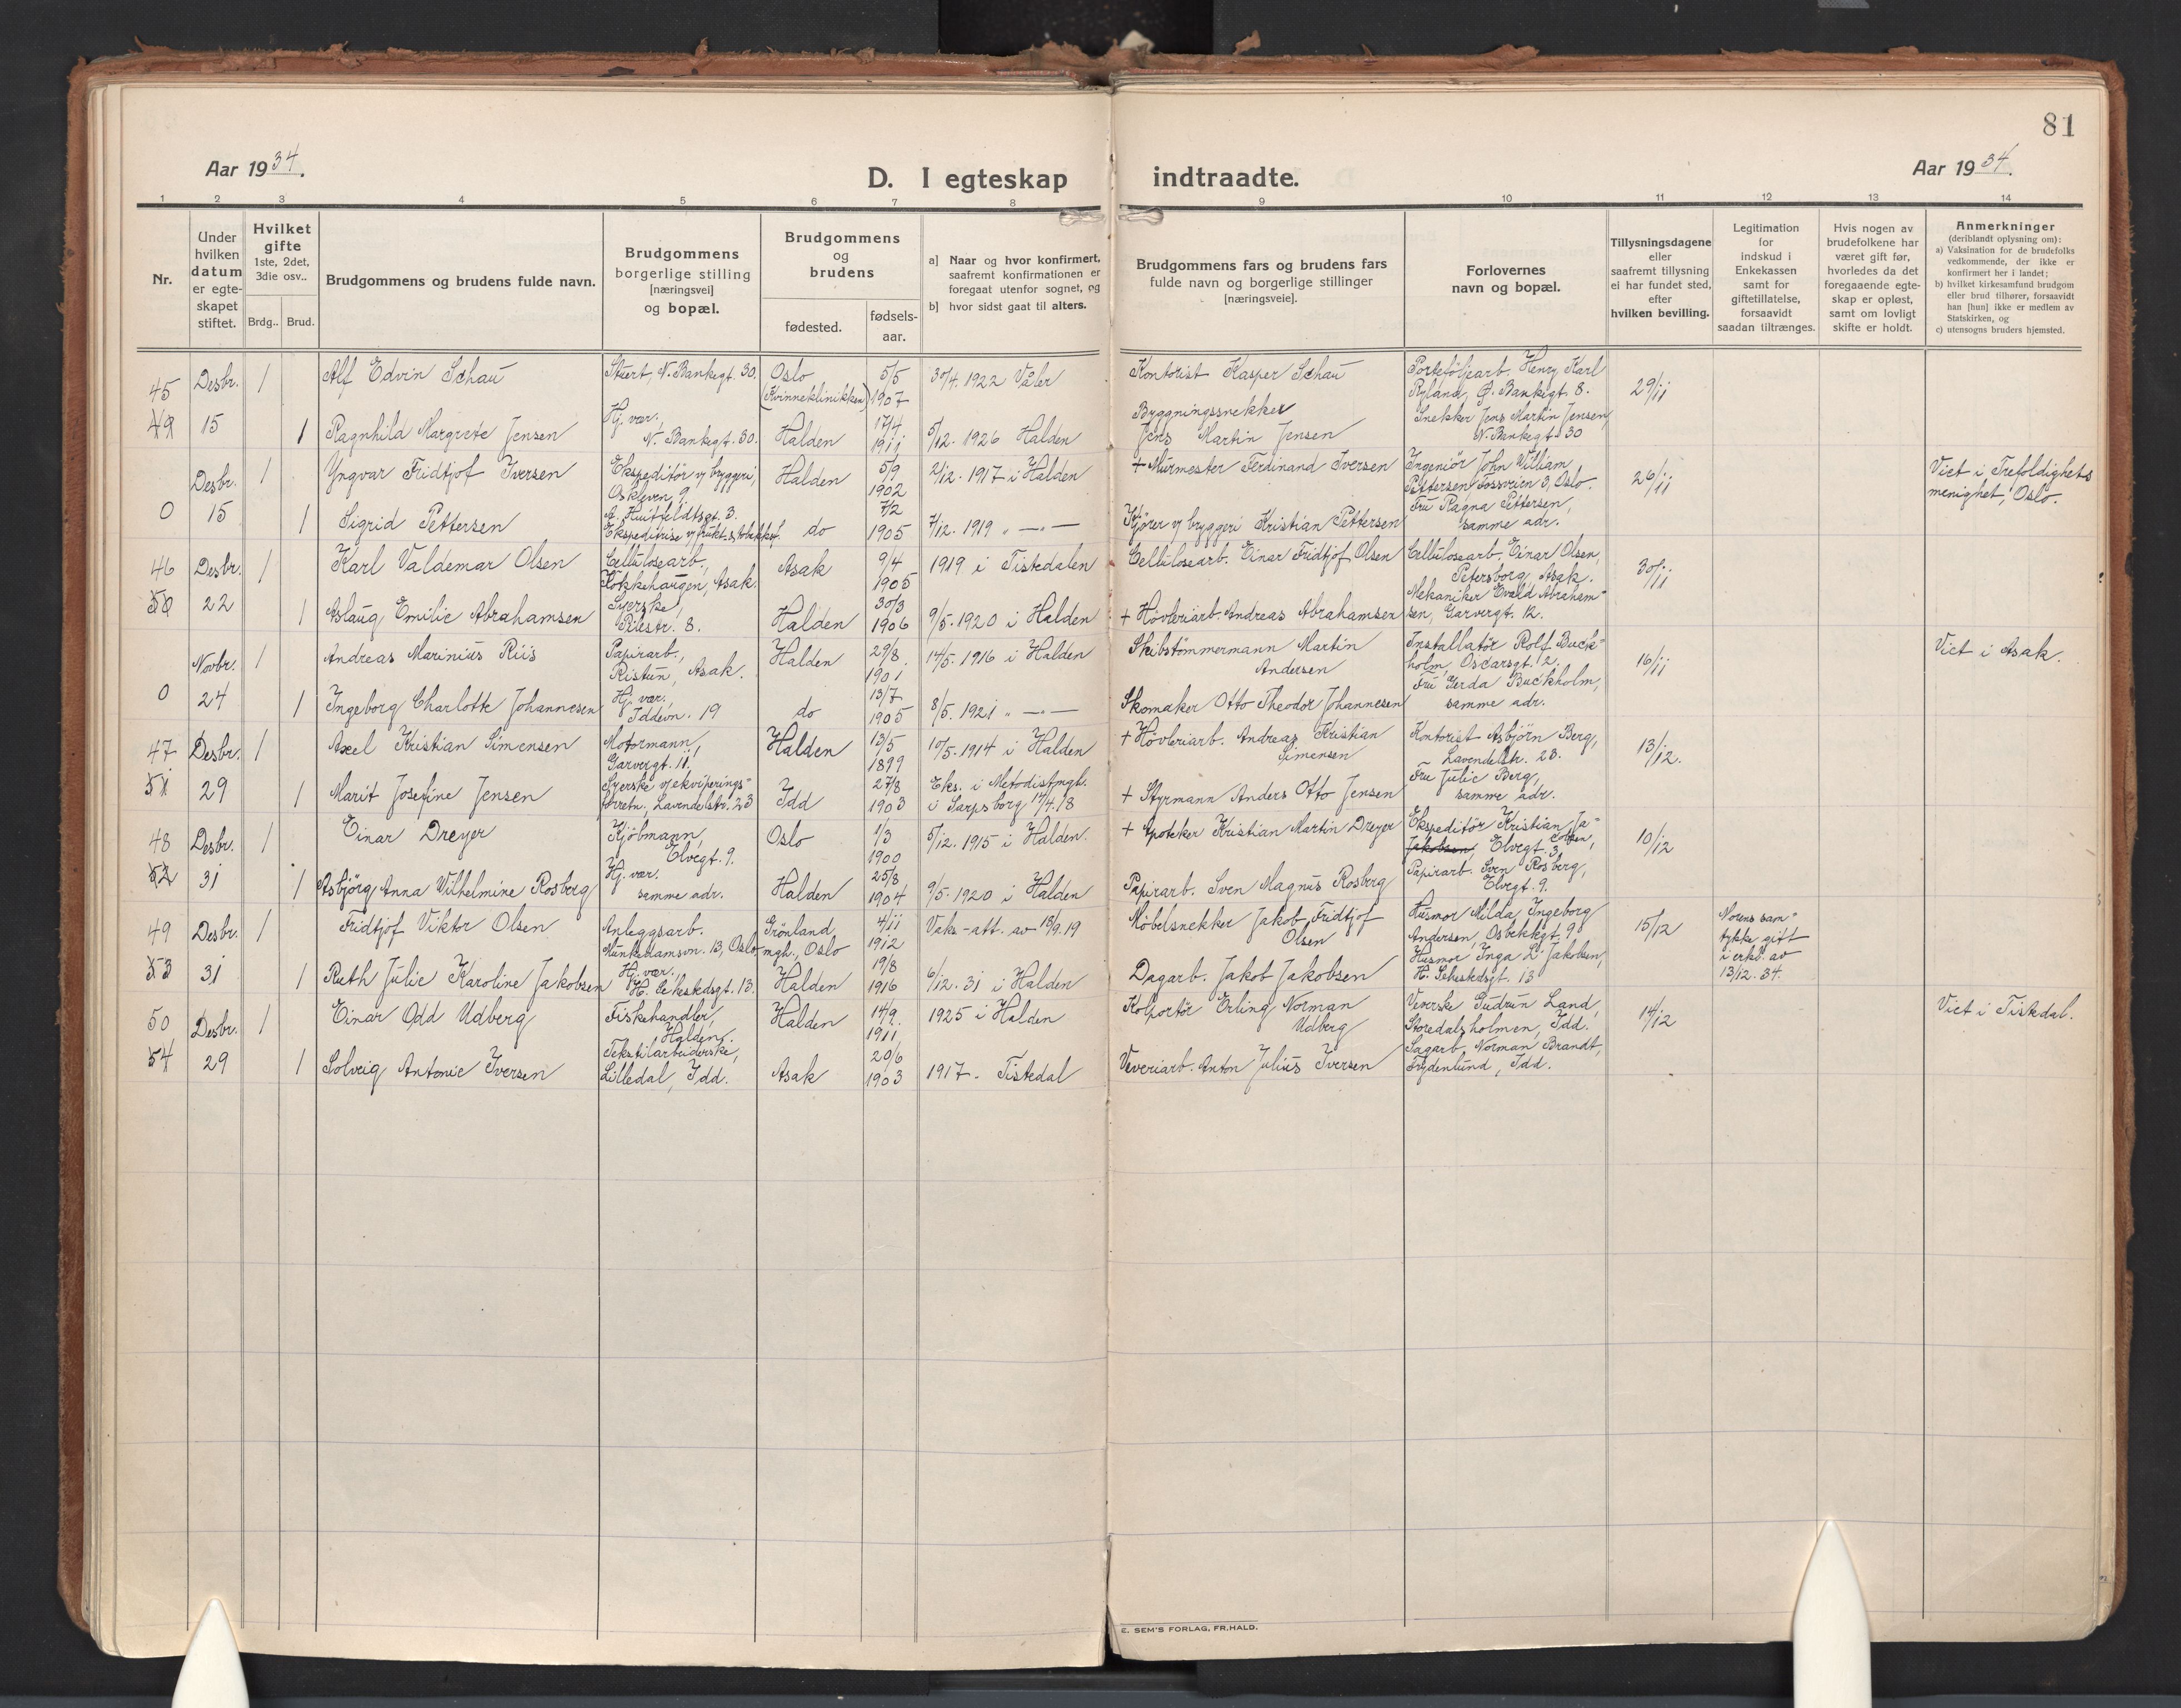 81
Aar 1934.
D. I egteskap indtraadte.
Aar 1934.
1 2 3 4 5 6 7 8 9 10 11 12 13 14
Nr.
Under hvilken datum er egte-skapet stiftet.
Hvilket gifte 1ste, 2det, 3die osv..
Brdg.. Brud.
Brudgommens og brudens fulde navn.
Brudgommens borgerlige stilling [næringsvei] og bopæl.
Brudgommens og brudens
fødested.
fødsels-aar.
a] Naar og hvor konfirmert, saafremt konfirmationen er foregaat utenfor sognet, og
b] hvor sidst gaat til alters.
Brudgommens fars og brudens fars fulde navn og borgerlige stillinger [næringsveie].
Forlovernes navn og bopæl.
Tillysningsdagene eller saafremt tillysning ei har fundet sted, efter hvilken bevilling.
Legitimation for indskud i Enkekassen samt for giftetillatelse, forsaavidt saadan tiltrænges.
Hvis nogen av brudefolkene har været gift før, hvorledes da det foregaaende egte-skap er opløst, samt om lovligt skifte er holdt.
Anmerkninger
(deriblandt oplysning om):
a) Vaksination for de brudefolks vedkommende, der ikke er konfirmert her i landet;
b) hvilket kirkesamfund brudgom eller brud tilhører, forsaavidt han [hun] ikke er medlem av Statskirken, og
c) utensogns bruders hjemsted.
45 Desbr. 1 Alf Edvin Schau Stuert, N. Bankegt. 30. Oslo (Kvinneklinikken) 5/5 1907 30/4. 1922 Våler Kontorist Kasper Schau Portefôljearb. Henry Karl Ryland, Ø. Bankegt. 8. 29/11
49 15 1 Ragnhild Margrete Jensen Hj. vær. N. Bankegt. 30. Halden 17/4 1911 5/12. 1926 Halden Byggningssnekker Jens Martin Jensen Snekker Jens Martin Jensen, N. Bankegt. 30
Desbr. 1 Yngvar Fridtjof Iversen Ekspeditör v/ bryggeri, Halden 5/9 1902 2/12. 1917 i Halden + Murmester Ferdinand Iversen Ingeniör John William Pettersen, Fossveien 3, Oslo. 26/11 Viet i Trefoldighets menighet, Oslo.
0 15 1 Sigrid Pettersen A. Huitfeldtsgt. 3. do 7/2 1905 7/12. 1919 " — " — Kjører v/ bryggeri Kristian Pettersen Fru Ragna Pettersen, samme adr.
46 Desbr. 1 Karl Valdemar Olsen Cellulosearb., Asak. Asak 9/4 1905 1919 i Tistedalen Cellulosearb. Einar Fridtjof Olsen Cellulosearb. Einar Olsen, Petersborg, Asak. 30/11
50 22 1 Aslaug Emilie Abrahamsen Syerske, Pilestr. 8. Halden 30/3 1906 9/5. 1920 i Halden + Høvleriarb. Andreas Abrahamsen Mekaniker Evald Abraham=sen, Garvergt. 12.
Novbr. 1 Andreas Marinius Riis Papirarb., Ristun, Asak. Halden 29/8 1901 14/5. 1916 i Halden Skibstömmermann Martin Andersen Installatör Rolf Buck=holm, Oscarsgt. 2. 16/11 Viet i Asak.
0 24 1 Ingeborg Charlotte Johannesen Hj. vær. Iddevn. 19 do 13/7 1905 8/5. 1921 " — " — Skomaker Otto Theodor Johannesen Fru Gerda Buckholm, samme adr.
47 Desbr. 1 Axel Kristian Simensen Motormann, Garvergt. 11. Halden 13/5 1899 10/5. 1914 i Halden + Høvleriarb. Andreas Kristian Simensen Kontorist Asbjörn Berg, Lavendelstr. 23. 13/12.
51 29 1 Marit Josefine Jensen Syerske v/ ekviperings=forretn., Lavendelstr. 23 Idd 27/8 1903 Eks. i Metodistmgh. i Sarpsborg 14/4. 18 + Styrmann Anders Otto Jensen Fru Julie Berg, samme adr.
48 Desbr. 1 Einar Dreyer Kjöbmann, Elvegt. 9. Oslo 1/3 1900 5/12. 1915 i Halden. + Apoteker Kristian Martin Dreyer Ekspeditör Kristian Ja=cobsen, Jakobsen, Elvegt. 3, 10/12
52 31 1 Asbjörg Anna Vilhelmine Rosberg Hj. vær. samme adr. Halden 25/8 1904 9/5. 1920 i Halden Papirarb. Sven Magnus Rosberg Papirarb. Sven Rosberg, Elvegt. 9.
49 Desbr. 1 Fridtjof Viktor Olsen Anleggsarb. Munkedamsvn. 13, Oslo Grönland, mgh., Oslo 4/11 1912 Vaks-att. av 13/9. 19 Möbelsnekker Jakob Fridtjof Olsen Husmor Milda Ingeborg Andersen, Osbekkgt. 9 15/12 Morens sam=tykke gitt i erkl. av 13/12. 34.
53 31 1 Ruth Julie Karoline Jakobsen Hj. vær. Halden 19/8 1916 6/12. 31 i Halden Dagarb. Jakob Jakobsen Husmor Inga L. Jakobsen,
50 Desbr. 1 Einar Odd Udberg Fiskehandler, Halden. Halden 14/9. 1911 1925 i Halden Kolportör Erling Norman Udberg Veverske Gudrun Land, Storedalsholmen, Idd. 14/12 Viet i Tistedal.
54 29 1 Solveig Antonie Iversen Tekstilarbeiderske, Lilledal, Idd. Asak 20/6 1903 1917. Tistedal Veveriarb. Anton Julius Iversen Sagarb. Norman Brandt, Frydenlund, Idd.
E. SEM'S FORLAG, FR.HALD.